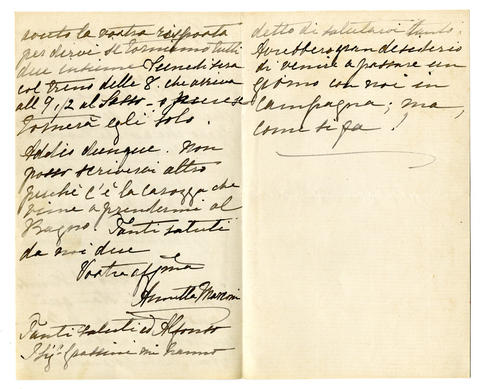 avuto la vostra risposta
per dirvi se torniamo tutti
due insieme Lunedì sera
col treno delle 8. che arriva
all 9½ al Sasso – o pure se
tornerà egli solo.
Addio dunque. Non
posso scrivervi altro
perchè c'è la carozza che
viene a prendermi al
Bagno. Tanti saluti
da noi due
Vostra affma
Annetta Marconi
Tanti saluti ad Alfonso
I Sigi Grassini mi hanno
detto di salutarvi tanto.
Avrebbero gran desiderio
di venire a passare un
giorno con noi in
Campagna; ma,
come si fa!